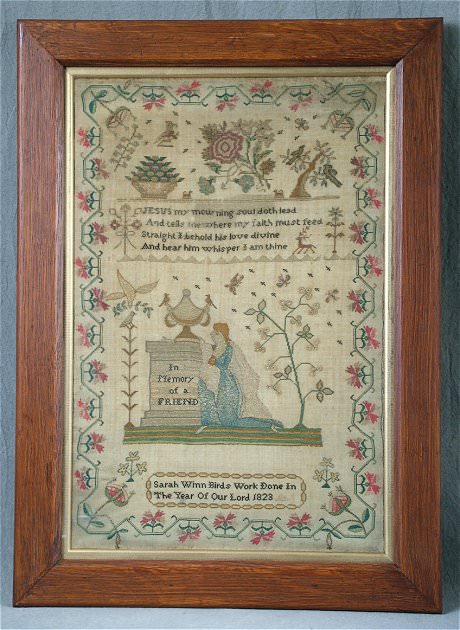 JESUS my mourning soul doth lead
And tells me where my faith must feed
Straight I behold his love divine
And hear him whisper I am thine
In
Memory
of a
FRIEND
Sarah Winn Birds Work Done In
The Year Of Our Lord 1823